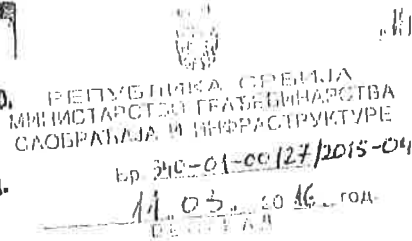 РЕПУБЛИКА СРБИЈА
МИНИСТАРСТВО ГРАЂЕВИНАРСТВА
САОБРАЋАЈА И ИНФРАСТРУКТУРЕ
Бр. 340-01-00127/2015-04
11. 03. 2016. год.
БЕОГРАД